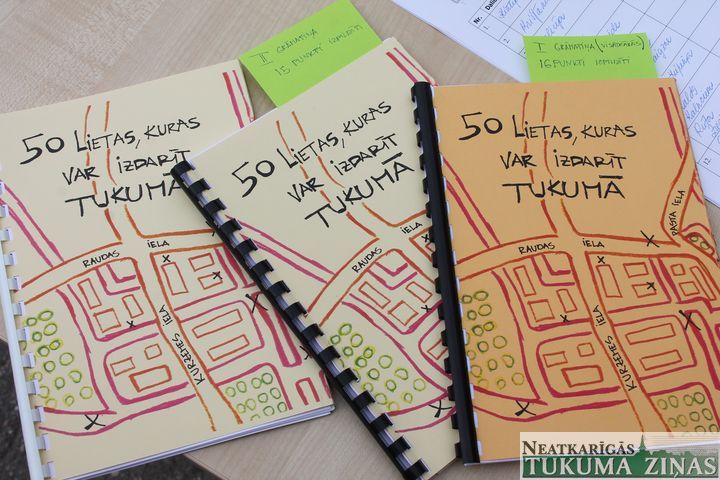 II GRĀMATIŅA
15 PUNKTI IZPILDĪTI
I GRĀMATIŅA (VISĀDĀKĀS)
16 PUNKTI IZPILDĪTI
Nr.
50 LIETAS, KURAS
VAR IZDARĪT
TUKUMĀ
RAUDAS IELA
KURZEMES IELA
50 LIETAS, KURAS
VAR IZDARĪT
TUKUMĀ
RAUDAS IELA
50 LIETAS, KURAS
VAR IZDARĪT
TUKUMĀ
PASTA IELA
RAUDAS IELA
KURZEMES IELA
NEATKARĪGĀS
TUKUMA ZIŅAS